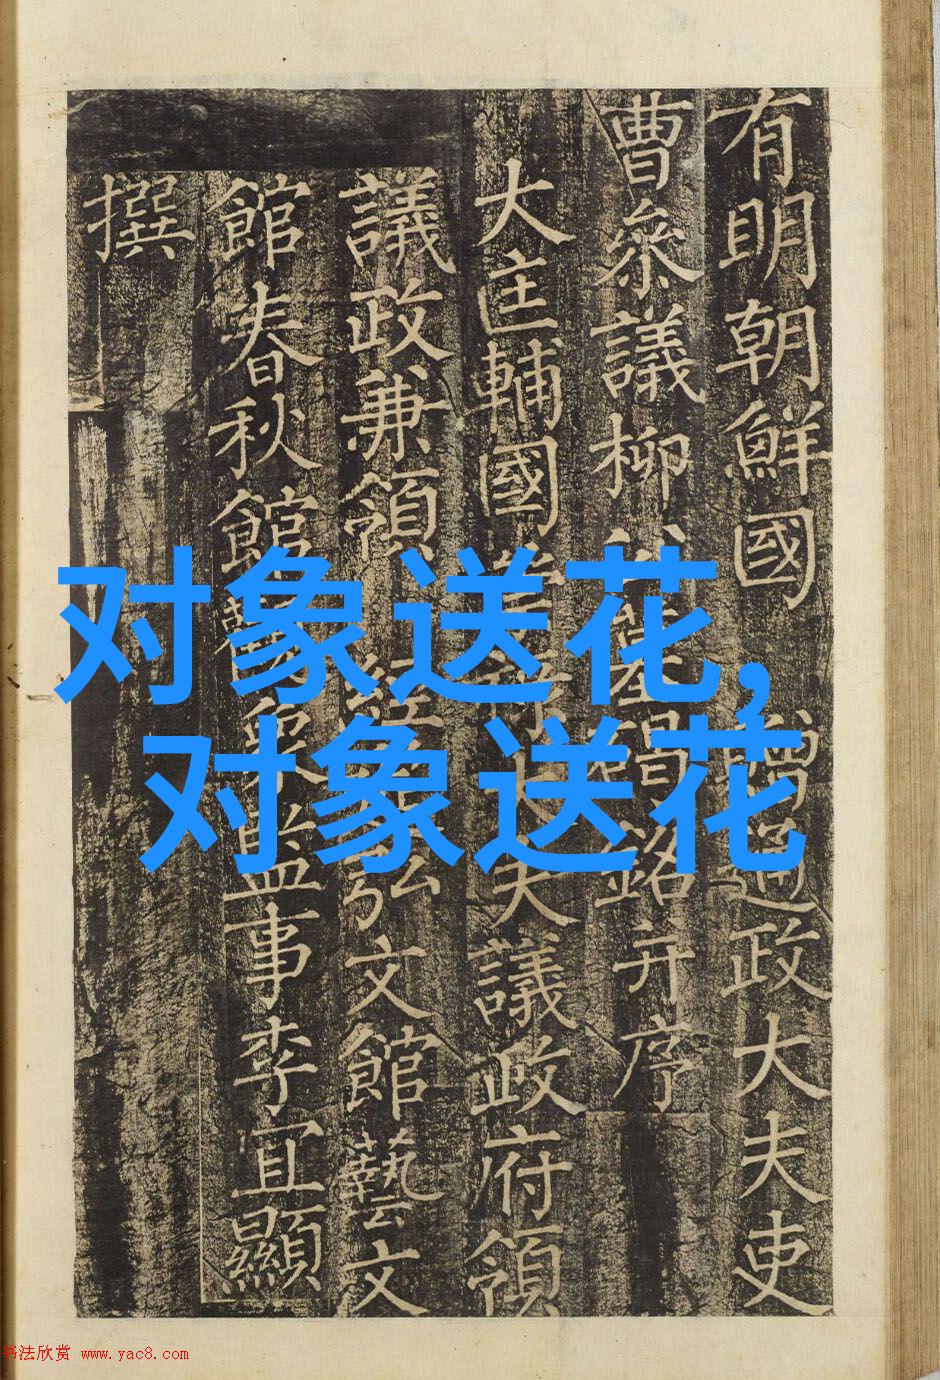 有明朝鮮國 贈通政大夫吏
曹叅議柳 墓碣銘并序
大匡輔國崇祿大夫議政府領
議政兼領 經筵弘文館藝文
館春秋館觀象監事李宜顯
撰
对象送花,
对象送花
书法欣赏 www.yac8.com